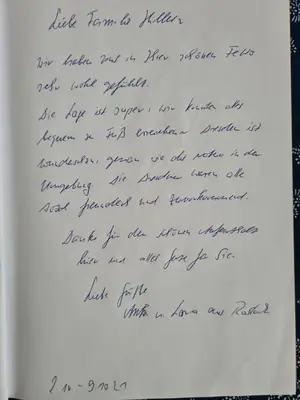 Liebe Familie
wir haben uns in Ihrer schönen FeWo
sehr wohl gefühlt.
Die Lage ist super, wir konnten alles
bequem zu Fuß erreichen. Dresden ist
wunderschön, genau wie die in der
Umgebung. Die Dresdner waren alle
freundlich und zuvorkommend.
Danke für den schönen Aufenthalt
hier und alles Gute für Sie.
Liebe Grüße
u. aus